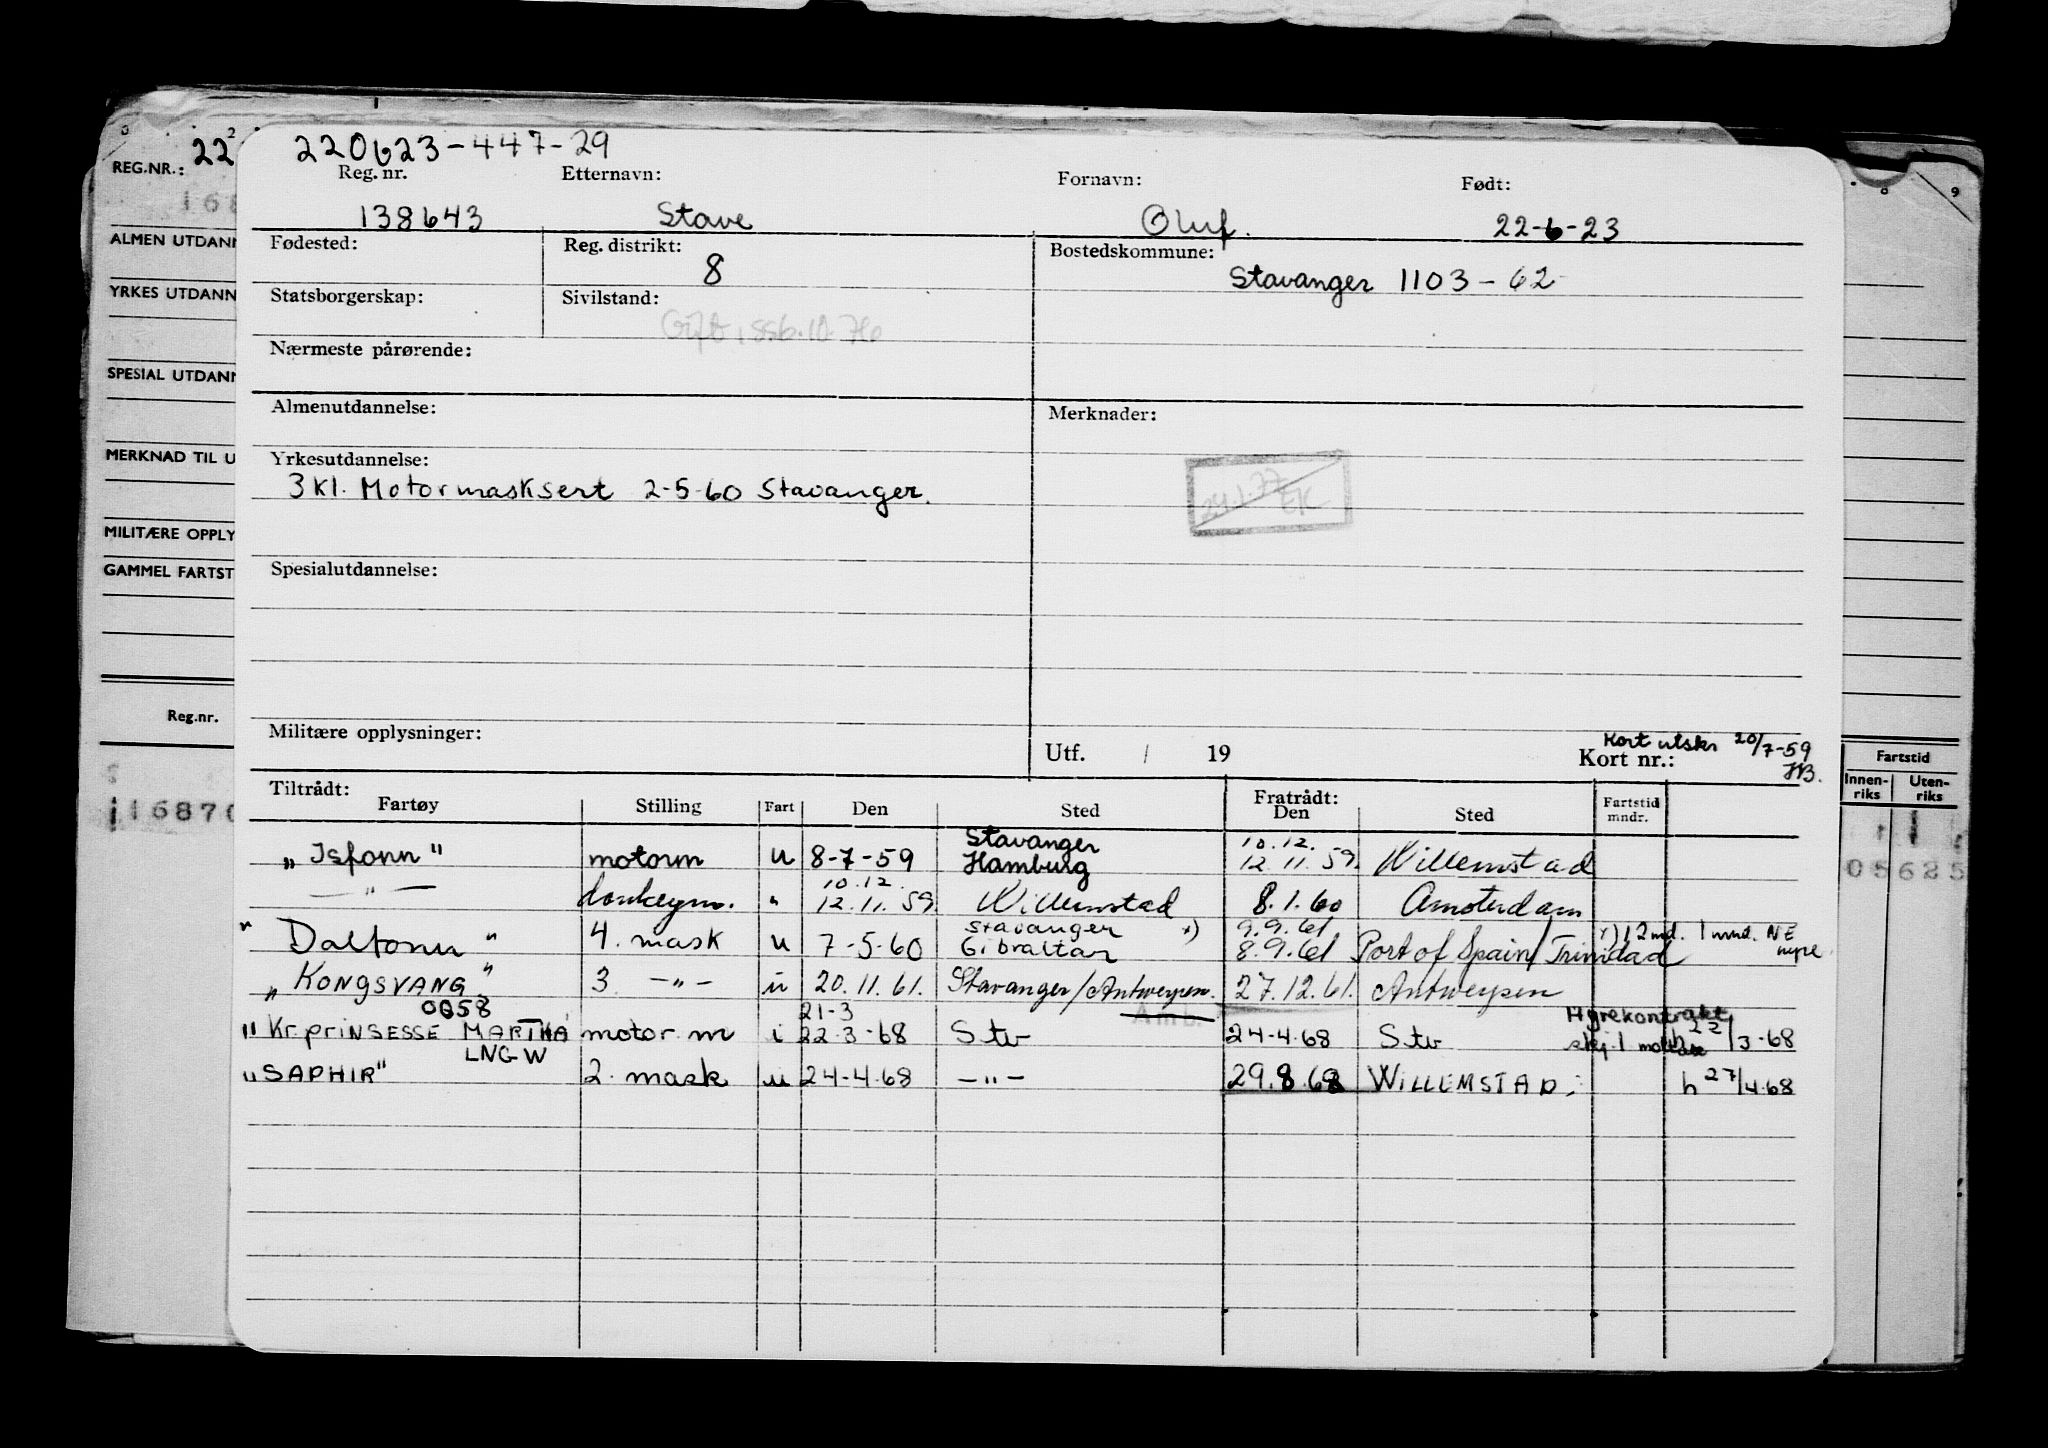 220623-447-29
Reg. nr. Etternavn: Fornavn: Født:
138643 Stave Oluf. 22-6-23
Fødested: Reg. distrikt: Bostedskommune:
8 Stavanger 1103-62
Statsborgerskap: Sivilstand:
Gift, ssb. 10.76
Nærmeste pårørende:
Almenutdannelse: Merknader:
Yrkesutdannelse:
3 kl. Motormasksert 2-5-60 Stavanger.
24.1.77 EK
Spesialutdannelse:
Militære opplysninger: Utf. / 19 Kort nr.:
Kort utskr 20/7-59
HB.
Tiltrådt: Fratrådt:
Fartøy Stilling Fart Den Sted Den Sted Fartstid mndr.
Stavanger 10.12.
"Isfonn" motorm u 8-7-59 Hamburg 12.11.59 Willemstad
10.12.
— " — donkeym. " 12.11.59 Willemstad 8.1.60 Amsterdam
Stavanger x) 9.9.61 x) 12 md. 1 mnd. NE
"Dalfonn" 4. mask u 7-5-60 Gibraltar 8.9.61 Port of Spain/Trinidad
"KONGSVANG" 3. —"— u 20.11.61. Stavanger/Antwerpen. 27.12.61. Antwerpen
0058 21-3 Amb. Hyrekontrakt
"Kr.prinsesse MARTHA" motor m i 22.3-68 Stv 24-4.68 Stv h 22/3-68
LNGW
"SAPHIR" 2. mask u 24-4.68 —"— 29.8.68 WILLEMSTAD. h 27/4.68
REG.NR.: 22
168
ALMEN UTDANN
YRKES UTDANN
SPESIAL UTDANN
MERKNAD TIL U
MILITÆRE OPPLY
GAMMEL FARTST
Reg.nr.
116870
8 9
Fartstid
Innen-riks Uten-riks
05625